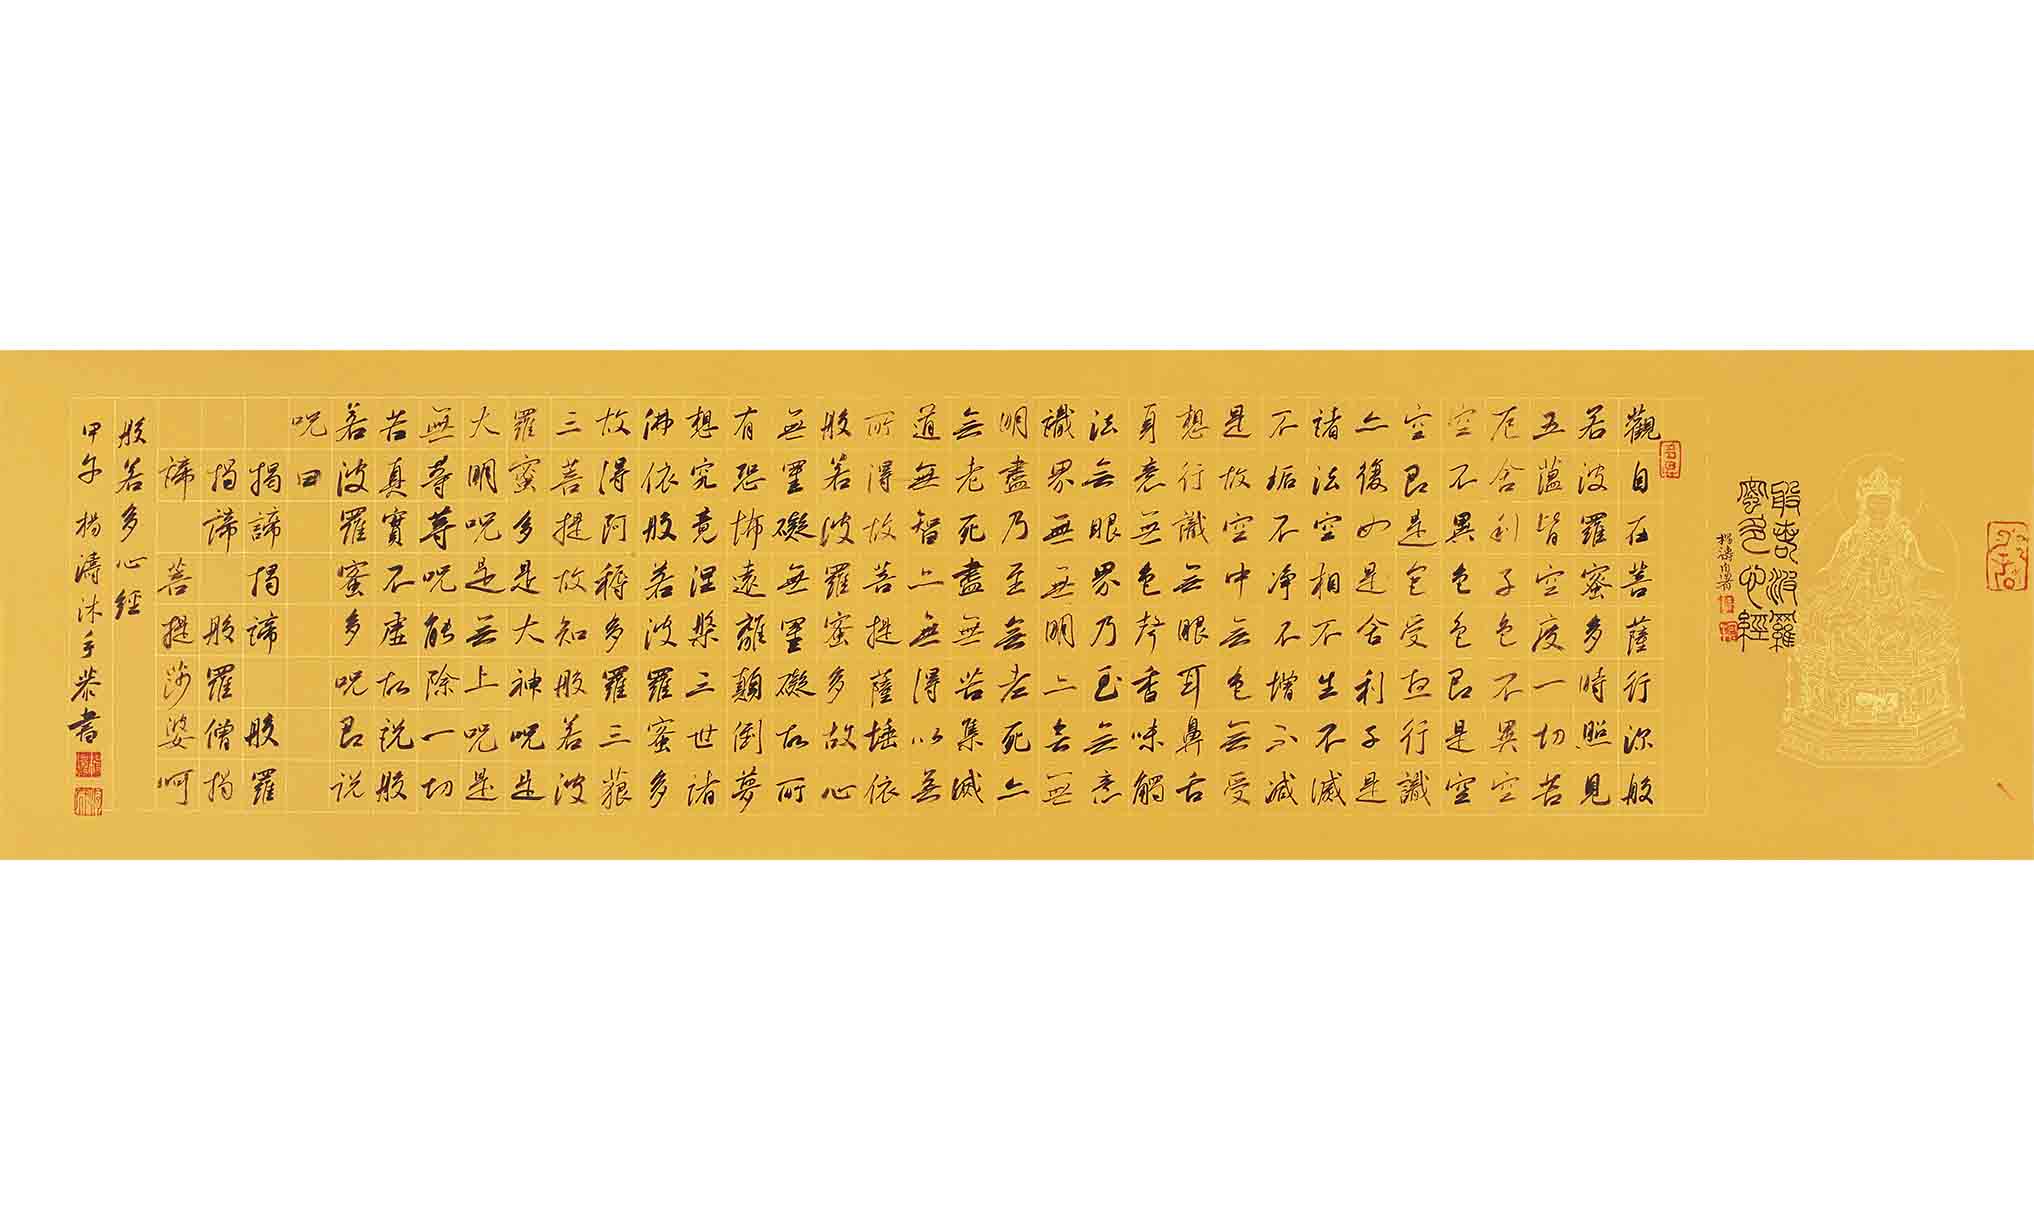 般若波羅
蜜多心經
楊濤自署
觀自在菩薩行深般
若波羅蜜多時照見
五蘊皆空度一切苦
厄舍利子色不異空
空不異色色即是空
空即是色受想行識
亦復如是舍利子是
諸法空相不生不滅
不垢不淨不增不減
是故空中無色無受
想行識無眼耳鼻舌
身意無色聲香味觸
法無眼界乃至無意
識界無無明亦無無
明盡乃至無老死亦
無老死盡無苦集滅
道無智亦無得以無
所得故菩提薩埵依
般若波羅蜜多故心
無罣礙無罣礙故所
有恐怖遠離顛倒夢
想究竟涅槃三世諸
佛依般若波羅蜜多
故得阿耨多羅三藐
三菩提故知般若波
羅蜜多是大神呪是
大明呪是無上呪是
無等等呪能除一切
苦真實不虛故說般
若波羅蜜多呪即說
呪曰
揭諦揭諦 般羅
揭諦 般羅僧揭
諦 菩提莎婆呵
般若多心經
甲午楊濤沐手恭書